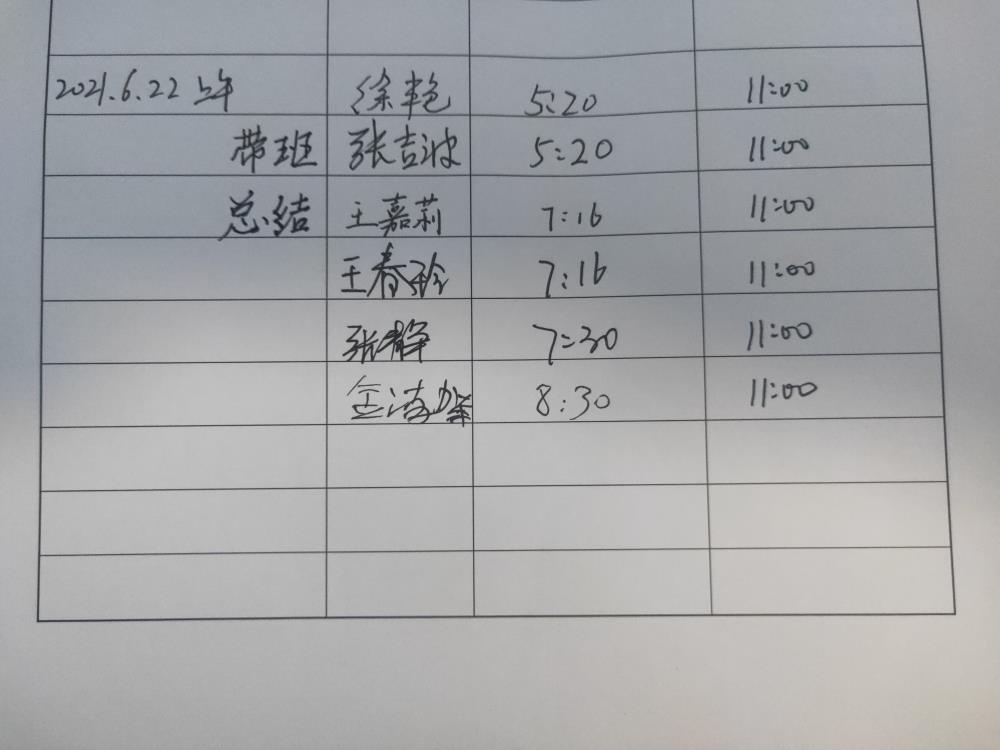 2021.6.22 上午 徐艳 5:20 11:00
带班 张吉波 5:20 11:00
总结 王嘉莉 7:16 11:00
王春玲 7:16 11:00
张静 7:30 11:00
金 8:30 11:00